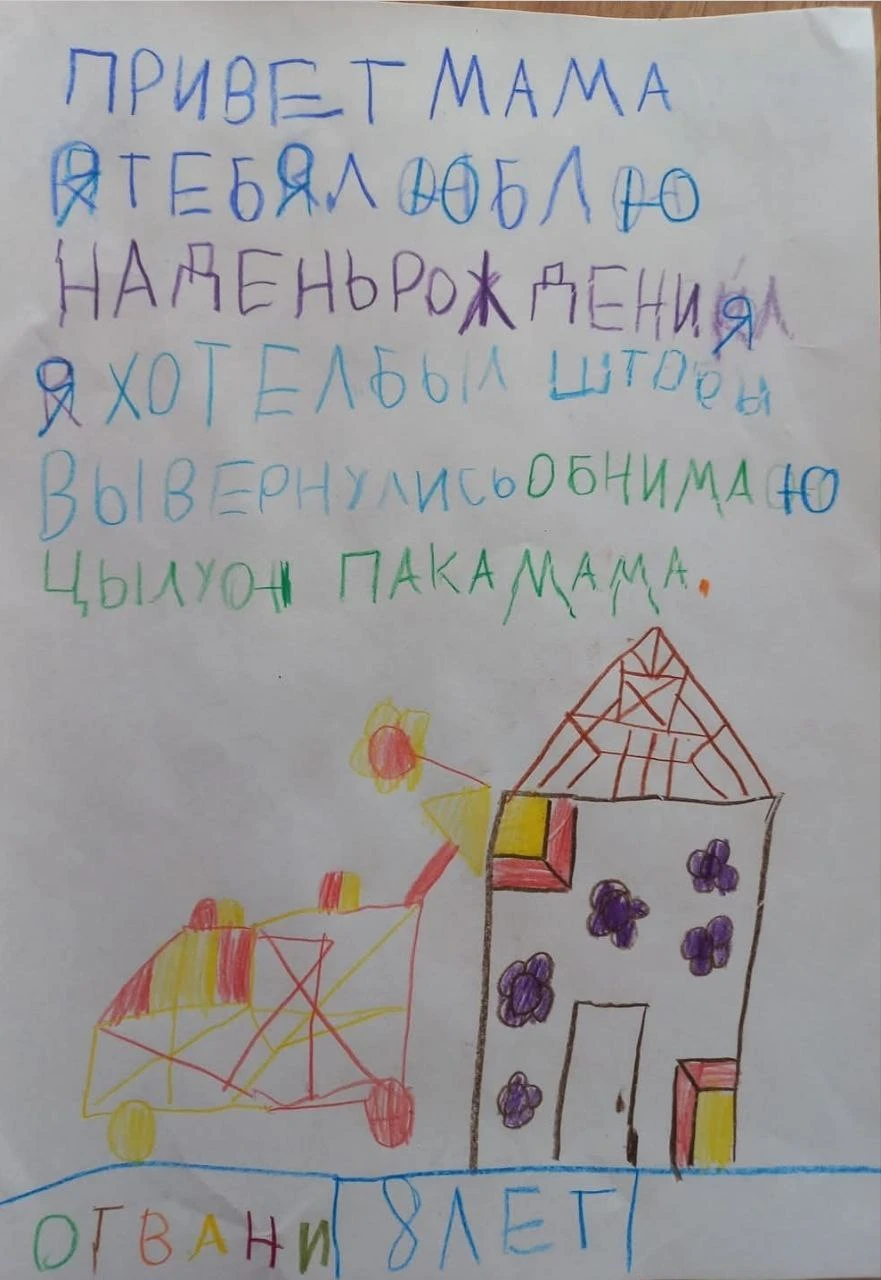 ПРИВЕТ МАМА
Я ТЕБЯ ЛЮБЛЮ
НА ДЕНЬ РОЖДЕНИЯ
Я ХОТЕЛ БЫЛ ШТОБЫ
ВЫ ВЕРНУЛИСЬ ОБНИМАЮ
ЦЫЛУЮ ПАКА МАМА.
ОТ ВАНИ 8 ЛЕТ